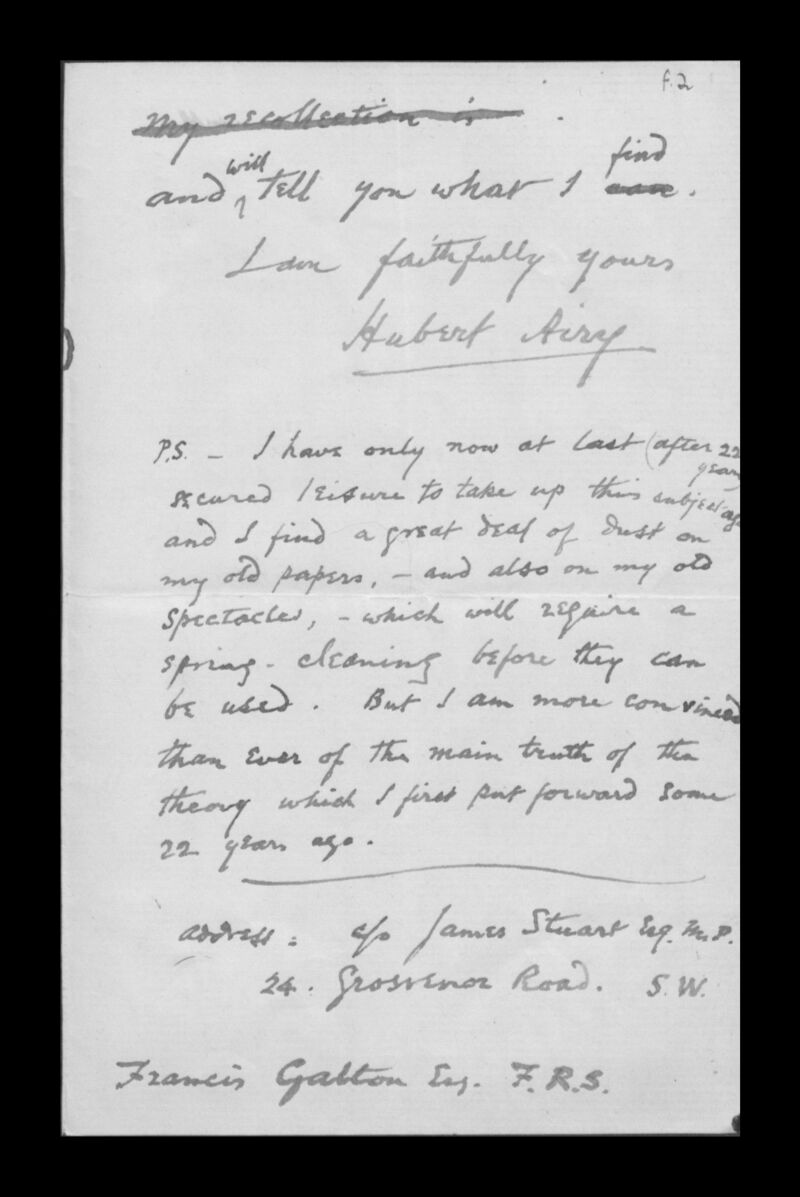 f.2
My recollection is
will find
and tell you what I can.
I am faithfully yours
Hubert Airy
P.S. – I have only now at last (after 22
years
secured leisure to take up this subject
and I find a great deal of dust on
my old papers, – and also on my old
spectacles, – which will require a
spring-cleaning before they can
be used. But I am more convinced
than ever of the main truth of the
theory which I first put forward some
22 years ago.
address: c/o James Stuart Esq. M.P.
24. Grosvenor Road. S.W.
Francis Galton Esq. F.R.S.